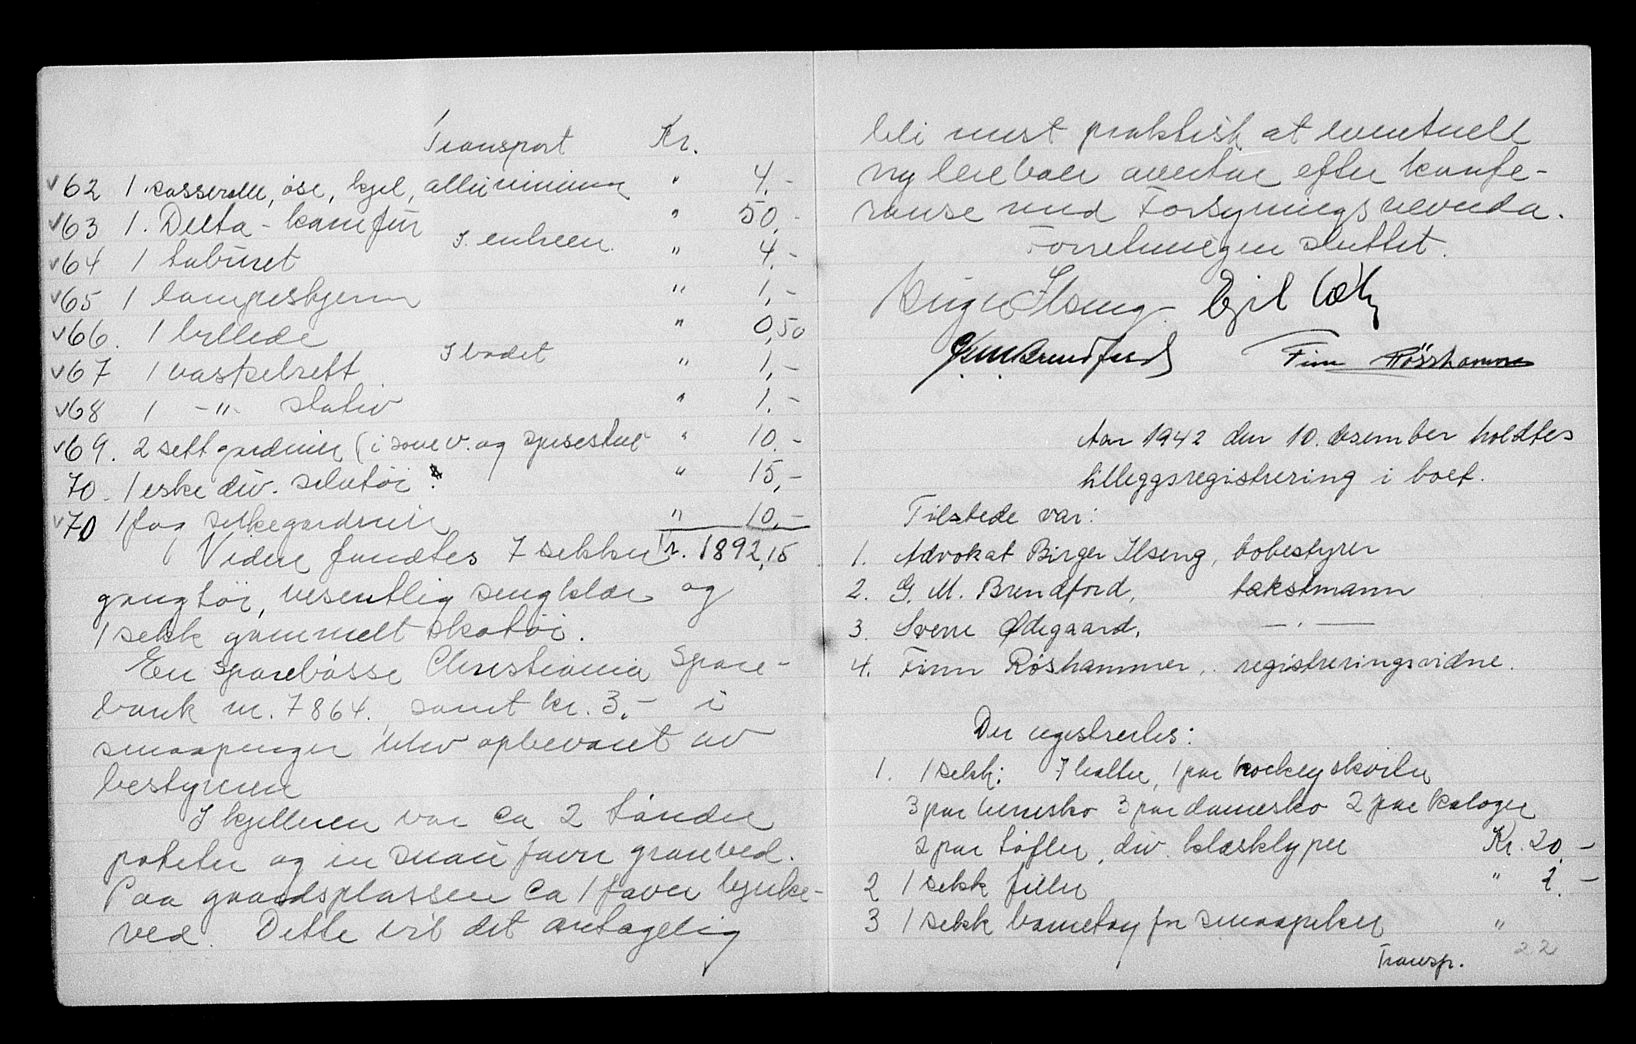 Transport Kr.
v62 1 kasserolle, øse, kjel, alluminium " 4,-
v63 1. Delta-komfür " 50,-
I entreen
v64 1 taburet " 4,-
v65 1 lampeskjerm " 1,-
v66. 1 billede " 0,50
I badet
v67 1 vaskebrett " 1,-
v68 1 -"- stativ " 1.-
v69. 2 sett gardiner (i sovev. og spisestue " 10.-
70. 1 eske div. " 15,-
v70 1 fag silkegardiner " 10,-
Kr. 1892,15
Videre fandtes 7 sekker
gangtöi, vesentlig sengklær og
1 sekk gammelt skotöi.
En Sparebösse Christiania Spare-
bank nr. 7864. samt kr. 3,- i
smaapenger blev opbevaret av
bestyreren
I kjelleren var ca 2 tönder
poteter og en snau favn granved.
Paa gaardsplassen ca 1 favn bjerke-
ved. Dette vil det antagelig
bli mest praktisk at eventuell
ny leieboer overtar efter konfe-
ranse med Forsyningsnevnda.
Forretningen sluttet.
Birger Ilseng. Egil
G.M. Brundford Finn Rösshammer
Aar 1942 den 10. desember holdtes
tilleggsregistrering i boet.
Tilstede var:
1. Advokat Birger Ilseng, bobestyrer
2. G. M. Brundford, takstmann
3. Sverre Ødegaard, —"—
4. Finn Roshammer, registreringsvidne.
Der registrertes:
1. 1 sekk: 7 hatter, 1 par hockeyskøiter
3 par herresko 3 par damesko 2 par kalosjer
2 par tøfler, div. klæsklyper Kr. 20,-
2 1 sekk filler " 2.-
3 1 sekk barnetøy for smaapiker "
Transp. 22